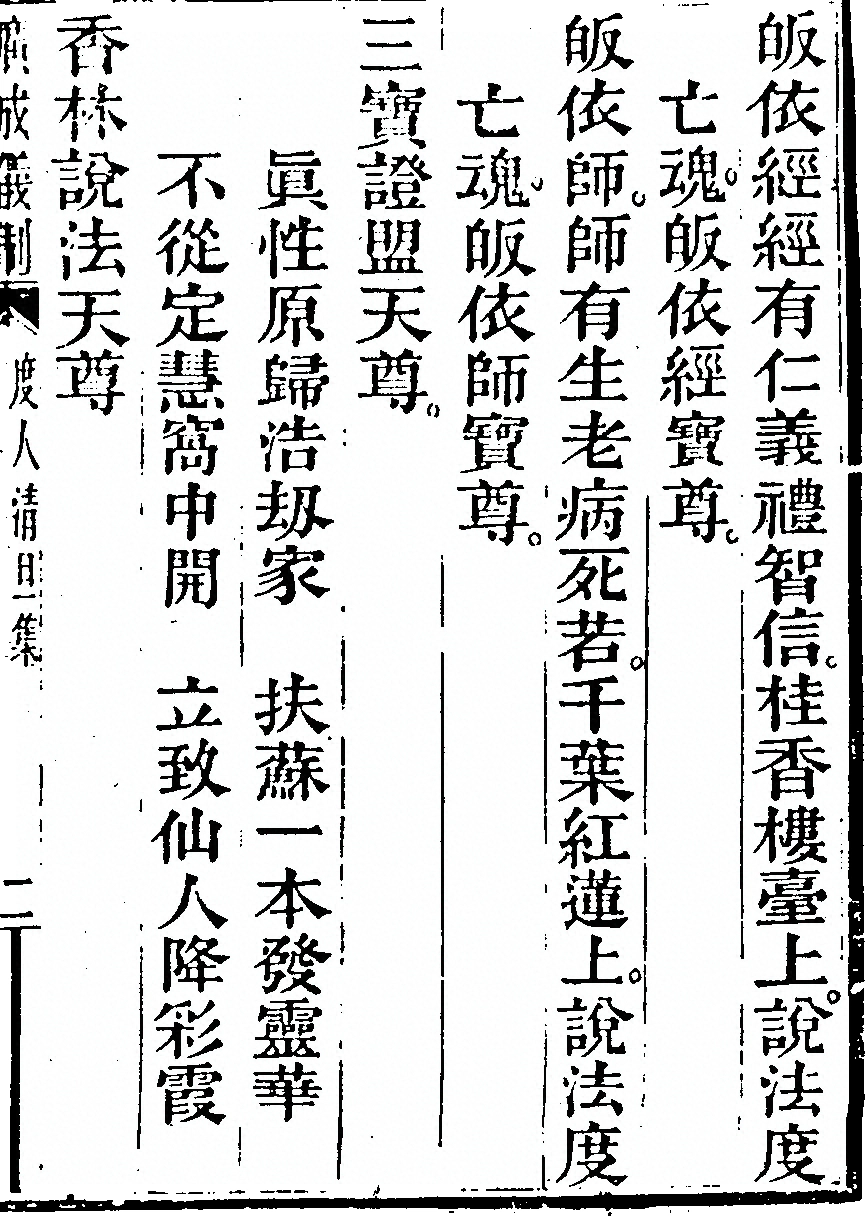 皈依經經有仁義禮智信。桂香樓臺上。說法度
亡魂。皈依經寶尊。
皈依師。師有生老病死若。千葉紅蓮上。說法度
亡魂。皈依師寶尊。
三寶證盟天尊。
眞性原歸浩刼家　扶蘇一本發靈華
不從定慧窩中開　立致仙人降彩霞
香林說法天尊
廣成儀制　度人清旦集　二